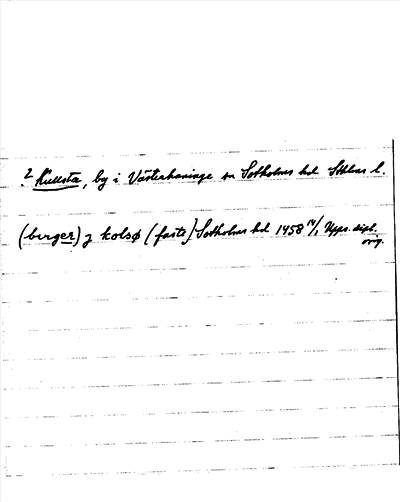 ? Kullsta, by i Västerhaninge sn Sotholms hd Sthlms l.
(berger) j kolsø (faste) Sotholms hd 1458 14/1 Upps. dipl.
orig.